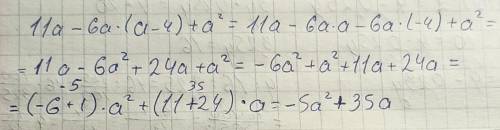 11a - 6a · (a - 4) + a² = 11a - 6a · a - 6a · (-4) + a² =
= 11a - 6a² + 24a + a² = -6a² + a² + 11a + 24a =
-5 35
= (-6 + 1) · a² + (11 + 24) · a = -5a² + 35a